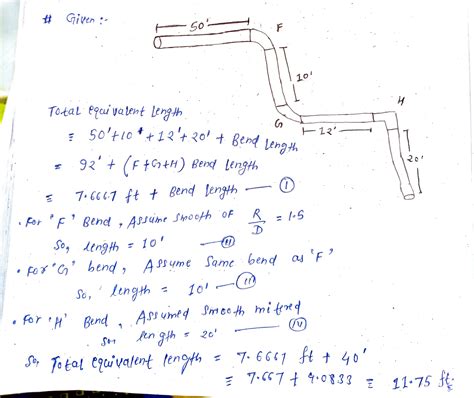 # Given :-
50'
F
10'
G
12'
H
20'
Total equivalent length
= 50' + 10' + 12' + 20' + Bend length
= 92' + (F+G+H) Bend length
= 7.6667 ft + Bend length — (I)
• For "F" Bend, Assume smooth of R/D = 1.5
So, length = 10' — (II)
• For "G" bend, Assume same bend as "F"
So, length = 10' — (III)
• For 'H' Bend, Assumed smooth mitred
so, length = 20' — (IV)
So, Total equivalent length = 7.6667 ft + 40'
= 7.667 + 4.0833 = 11.75 ft.